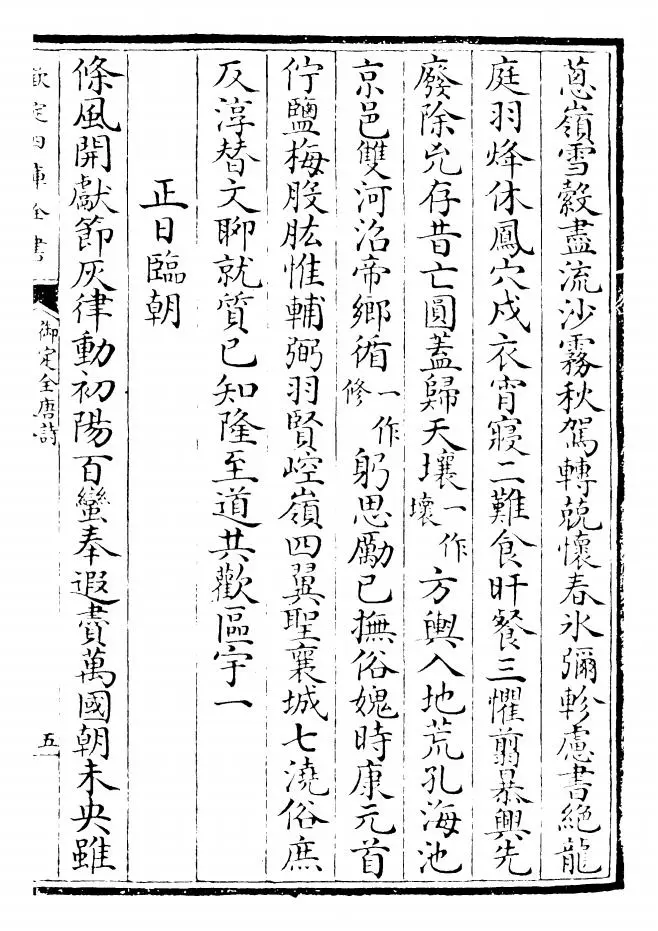 蔥嶺雪縠盡流沙霧秋駕轉兢懷春氷彌軫慮書絶龍
庭羽烽休鳳穴戍衣宵寢二難食旰餐三懼翦暴興先
廢除兇存昔亡圓蓋歸天壤一作壞方輿入地荒孔海池
京邑雙河沼帝鄉循一作修躬思勵已撫俗媿時康元首
佇鹽梅股肱惟輔弼羽賢崆嶺四翼聖襄城七澆俗庶
反淳替文聊就質已知隆至道共歡區宇一
正日臨朝
條風開獻節灰律動初陽百蠻奉遐賮萬國朝未央雖
欽定四庫全書
御定全唐詩
五